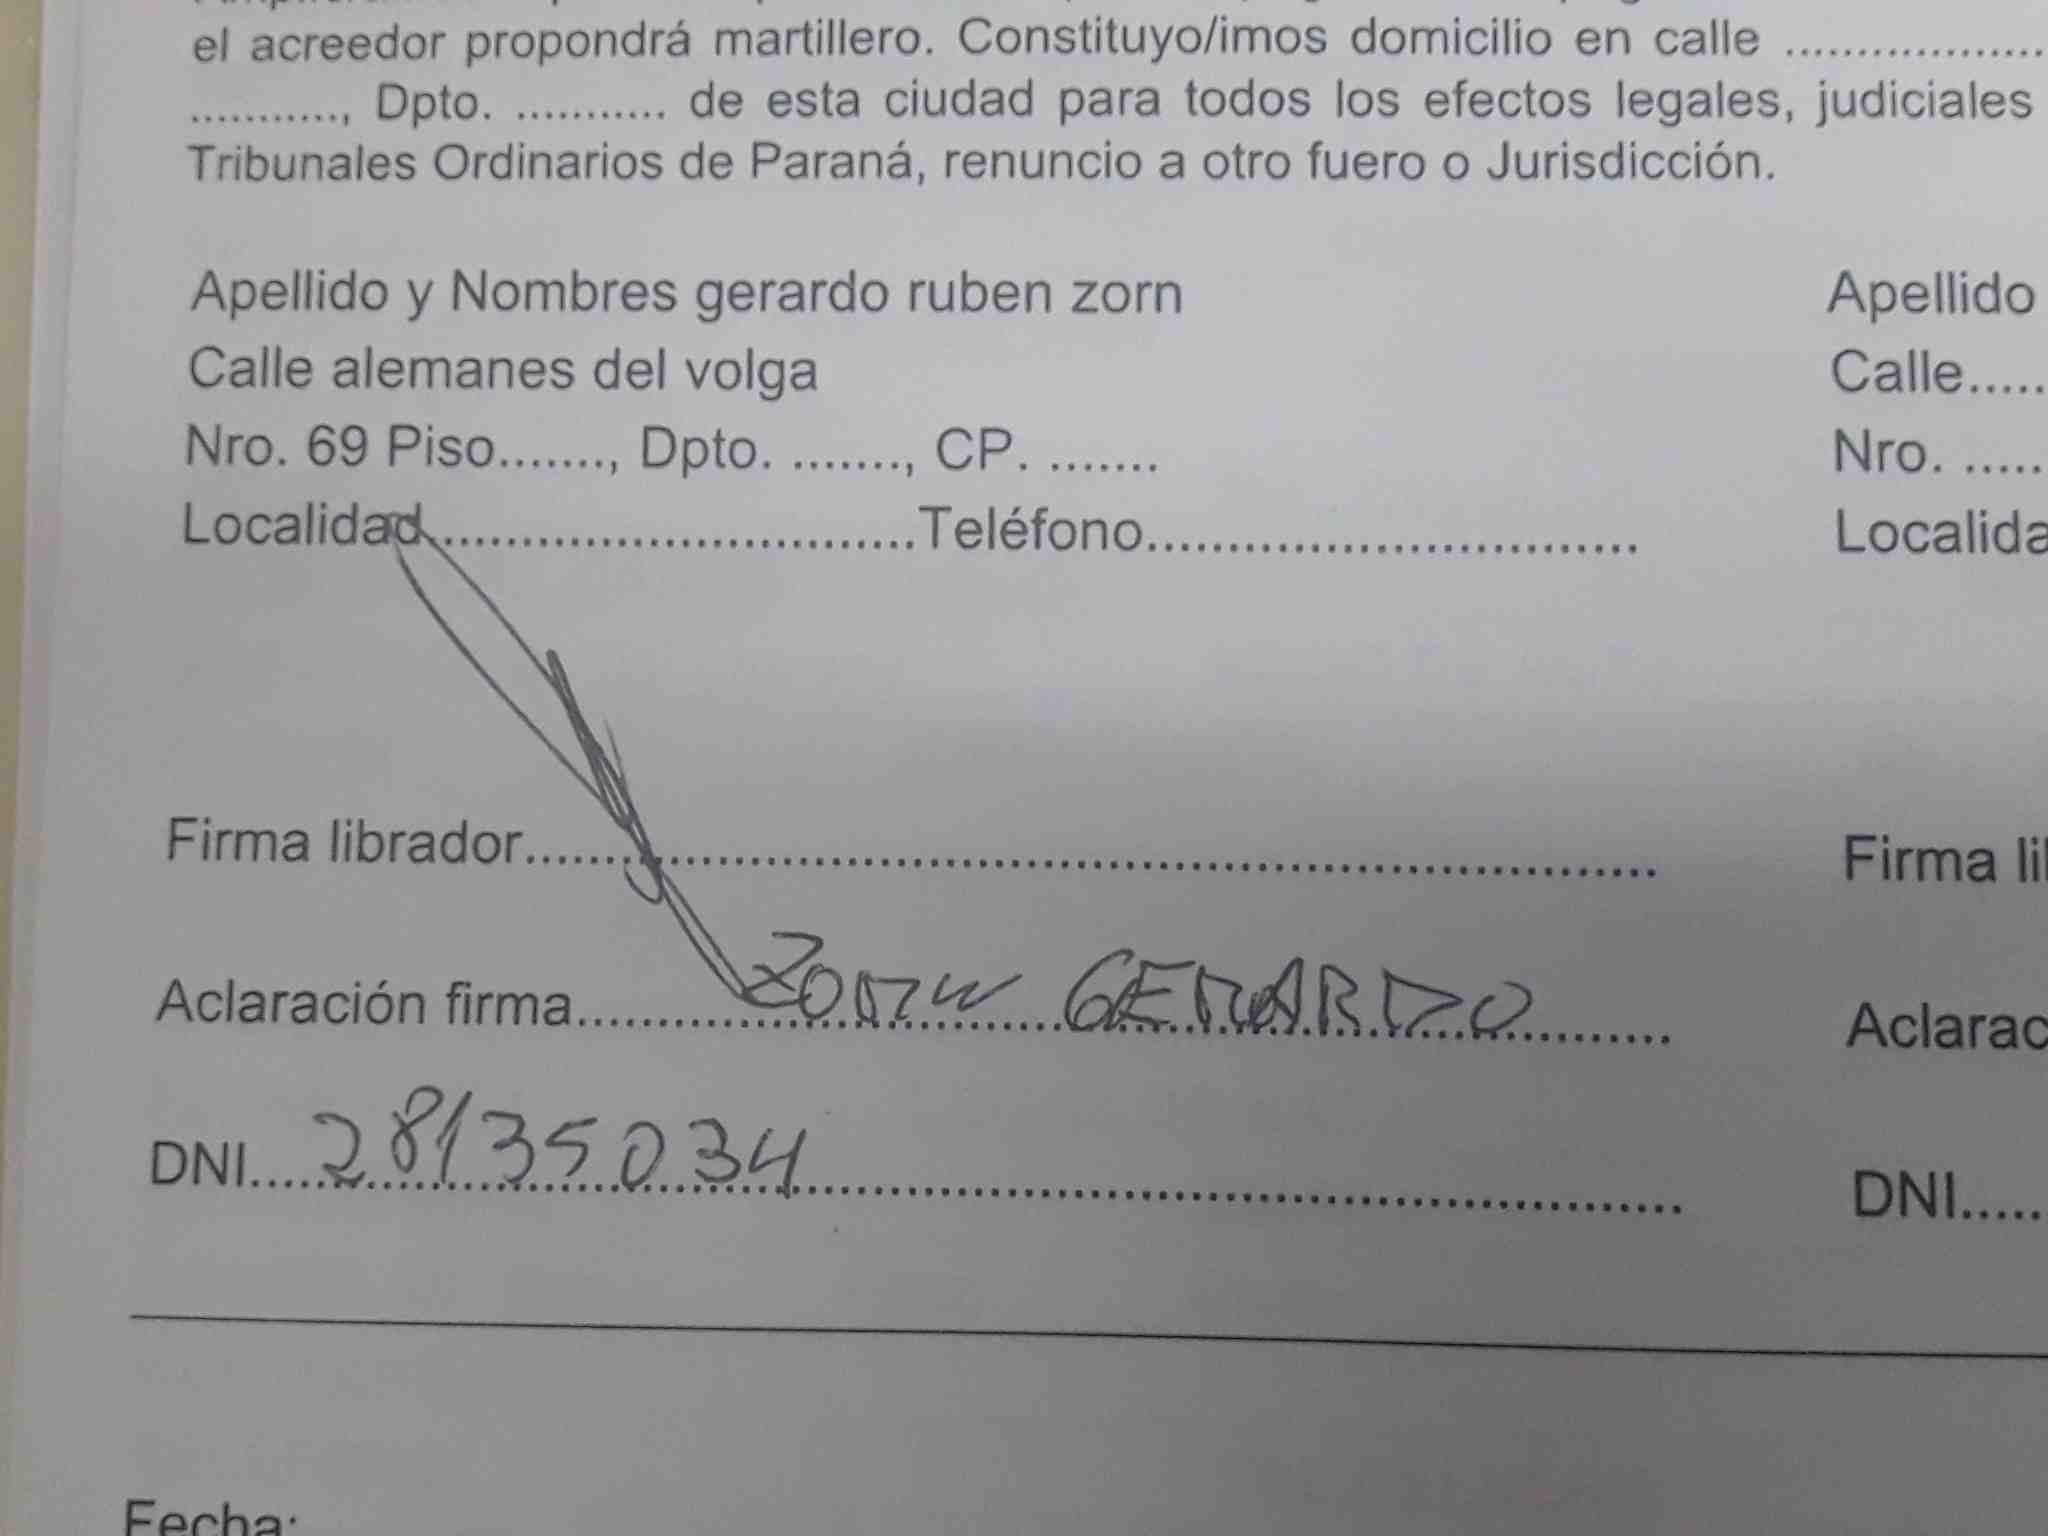 el acreedor propondrá martillero. Constituyo/imos domicilio en calle ..................
............, Dpto. ........... de esta ciudad para todos los efectos legales, judiciales
Tribunales Ordinarios de Paraná, renuncio a otro fuero o Jurisdicción.
Apellido y Nombres gerardo ruben zorn
Calle alemanes del volga
Nro. 69 Piso......., Dpto. ......., CP. .......
Localidad...............................Teléfono...............................
Firma librador...............................
Aclaración firma.......... ZORN GERARDO
DNI.... 28135034
Apellido
Calle.....
Nro. .....
Localida
Firma li
Aclarac
DNI.....
Fecha: